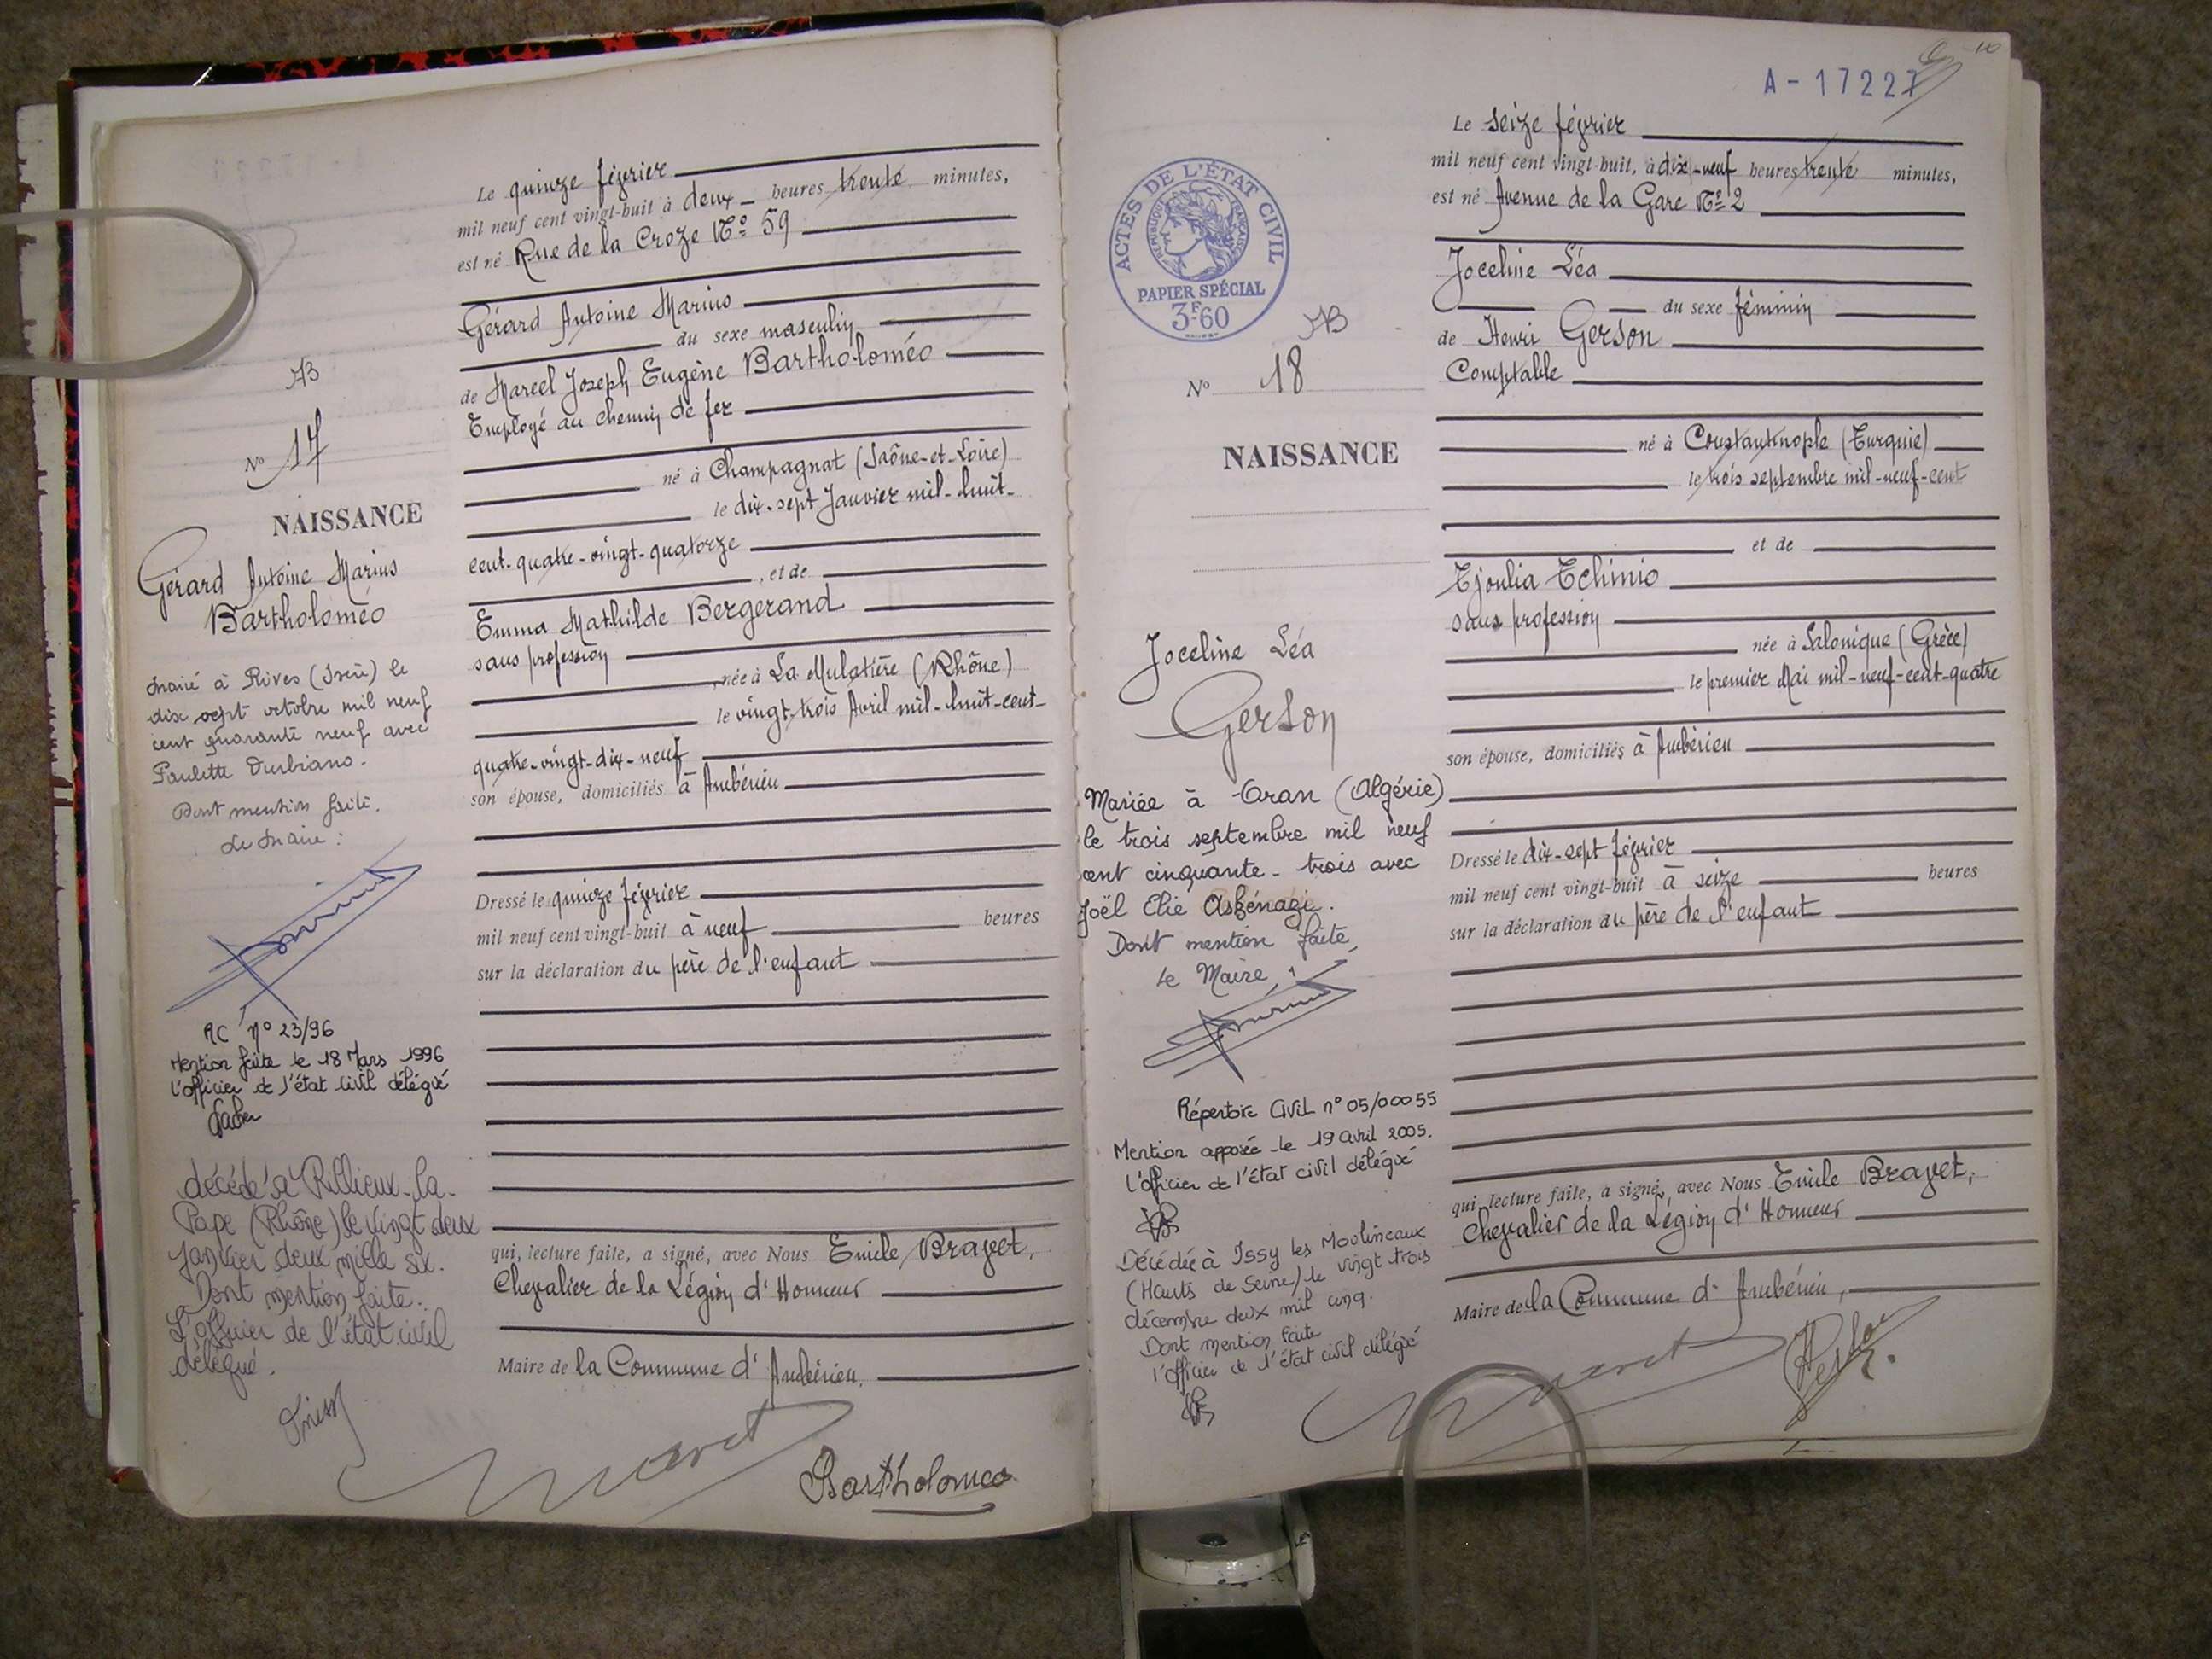 Le quinze février
mil neuf cent vingt-huit à deux heures trente minutes,
est né Rue de la Croze N° 59
Gérard Antoine Marius
du sexe masculin
de Marcel Joseph Eugène Bartholoméo
Employé au chemin de fer
né à Champagnat (Saône-et-Loire)
le dix-sept Janvier mil-huit-
cent-quatre-vingt-quatorze
, et de
Emma Mathilde Bergerand
sans profession
, née à La Mulatière (Rhône)
le vingt-trois Avril mil-huit-cent-
quatre-vingt-dix-neuf
son épouse, domiciliés à Ambérieu
Dressé le quinze février
mil neuf cent vingt-huit à neuf heures
sur la déclaration du père de l'enfant
qui, lecture faite, a signé, avec Nous Emile Bravet,
Chevalier de la Légion d'Honneur
Maire de la Commune d'Ambérieu.
Bartholomeo
AB
N° 17
NAISSANCE
Gérard Antoine Marius
Bartholoméo
Marié à Rives (Isère) le
dix sept octobre mil neuf
cent quarante neuf avec
Paulette Durbiano.
Dont mention faite.
Le Maire :
RC N° 23/96
Mention faite le 18 Mars 1996
l'officier de l'état civil délégué
décédé à Rillieux-la-
Pape (Rhône) le vingt deux
janvier deux mille six.
Dont mention faite.
L'officier de l'état civil
délégué.
A-17227
10
Le seize février
mil neuf cent vingt-huit, à dix-neuf heures trente minutes,
est né Avenue de la Gare N° 2
Joceline Léa
du sexe féminin
de Henri Gerson
Comptable
né à Constantinople (Turquie)
le trois septembre mil-neuf-cent
et de
Tjoulia Tchimio
sans profession
née à Salonique (Grèce)
le premier Mai mil-neuf-cent-quatre
son épouse, domiciliés à Ambérieu
Dressé le dix-sept février
mil neuf cent vingt-huit à seize heures
sur la déclaration du père de l'enfant
qui, lecture faite, a signé, avec Nous Emile Bravet,
Chevalier de la Légion d'Honneur
Maire de la Commune d'Ambérieu,
ACTES DE L'ÉTAT CIVIL
RÉPUBLIQUE FRANÇAISE
PAPIER SPÉCIAL
3F60
AB
N° 18
NAISSANCE
Joceline Léa
Gerson
Mariée à Oran (Algérie)
le trois septembre mil neuf
cent cinquante-trois avec
Joël Elie Askénazi.
Dont mention faite,
Le Maire,
Répertoire Civil n° 05/00055
Mention apposée le 19 avril 2005.
l'officier de l'état civil délégué
Décédée à Issy les Moulineaux
(Hauts de Seine) le vingt trois
décembre deux mil cinq.
Dont mention faite
l'officier de l'état civil délégué